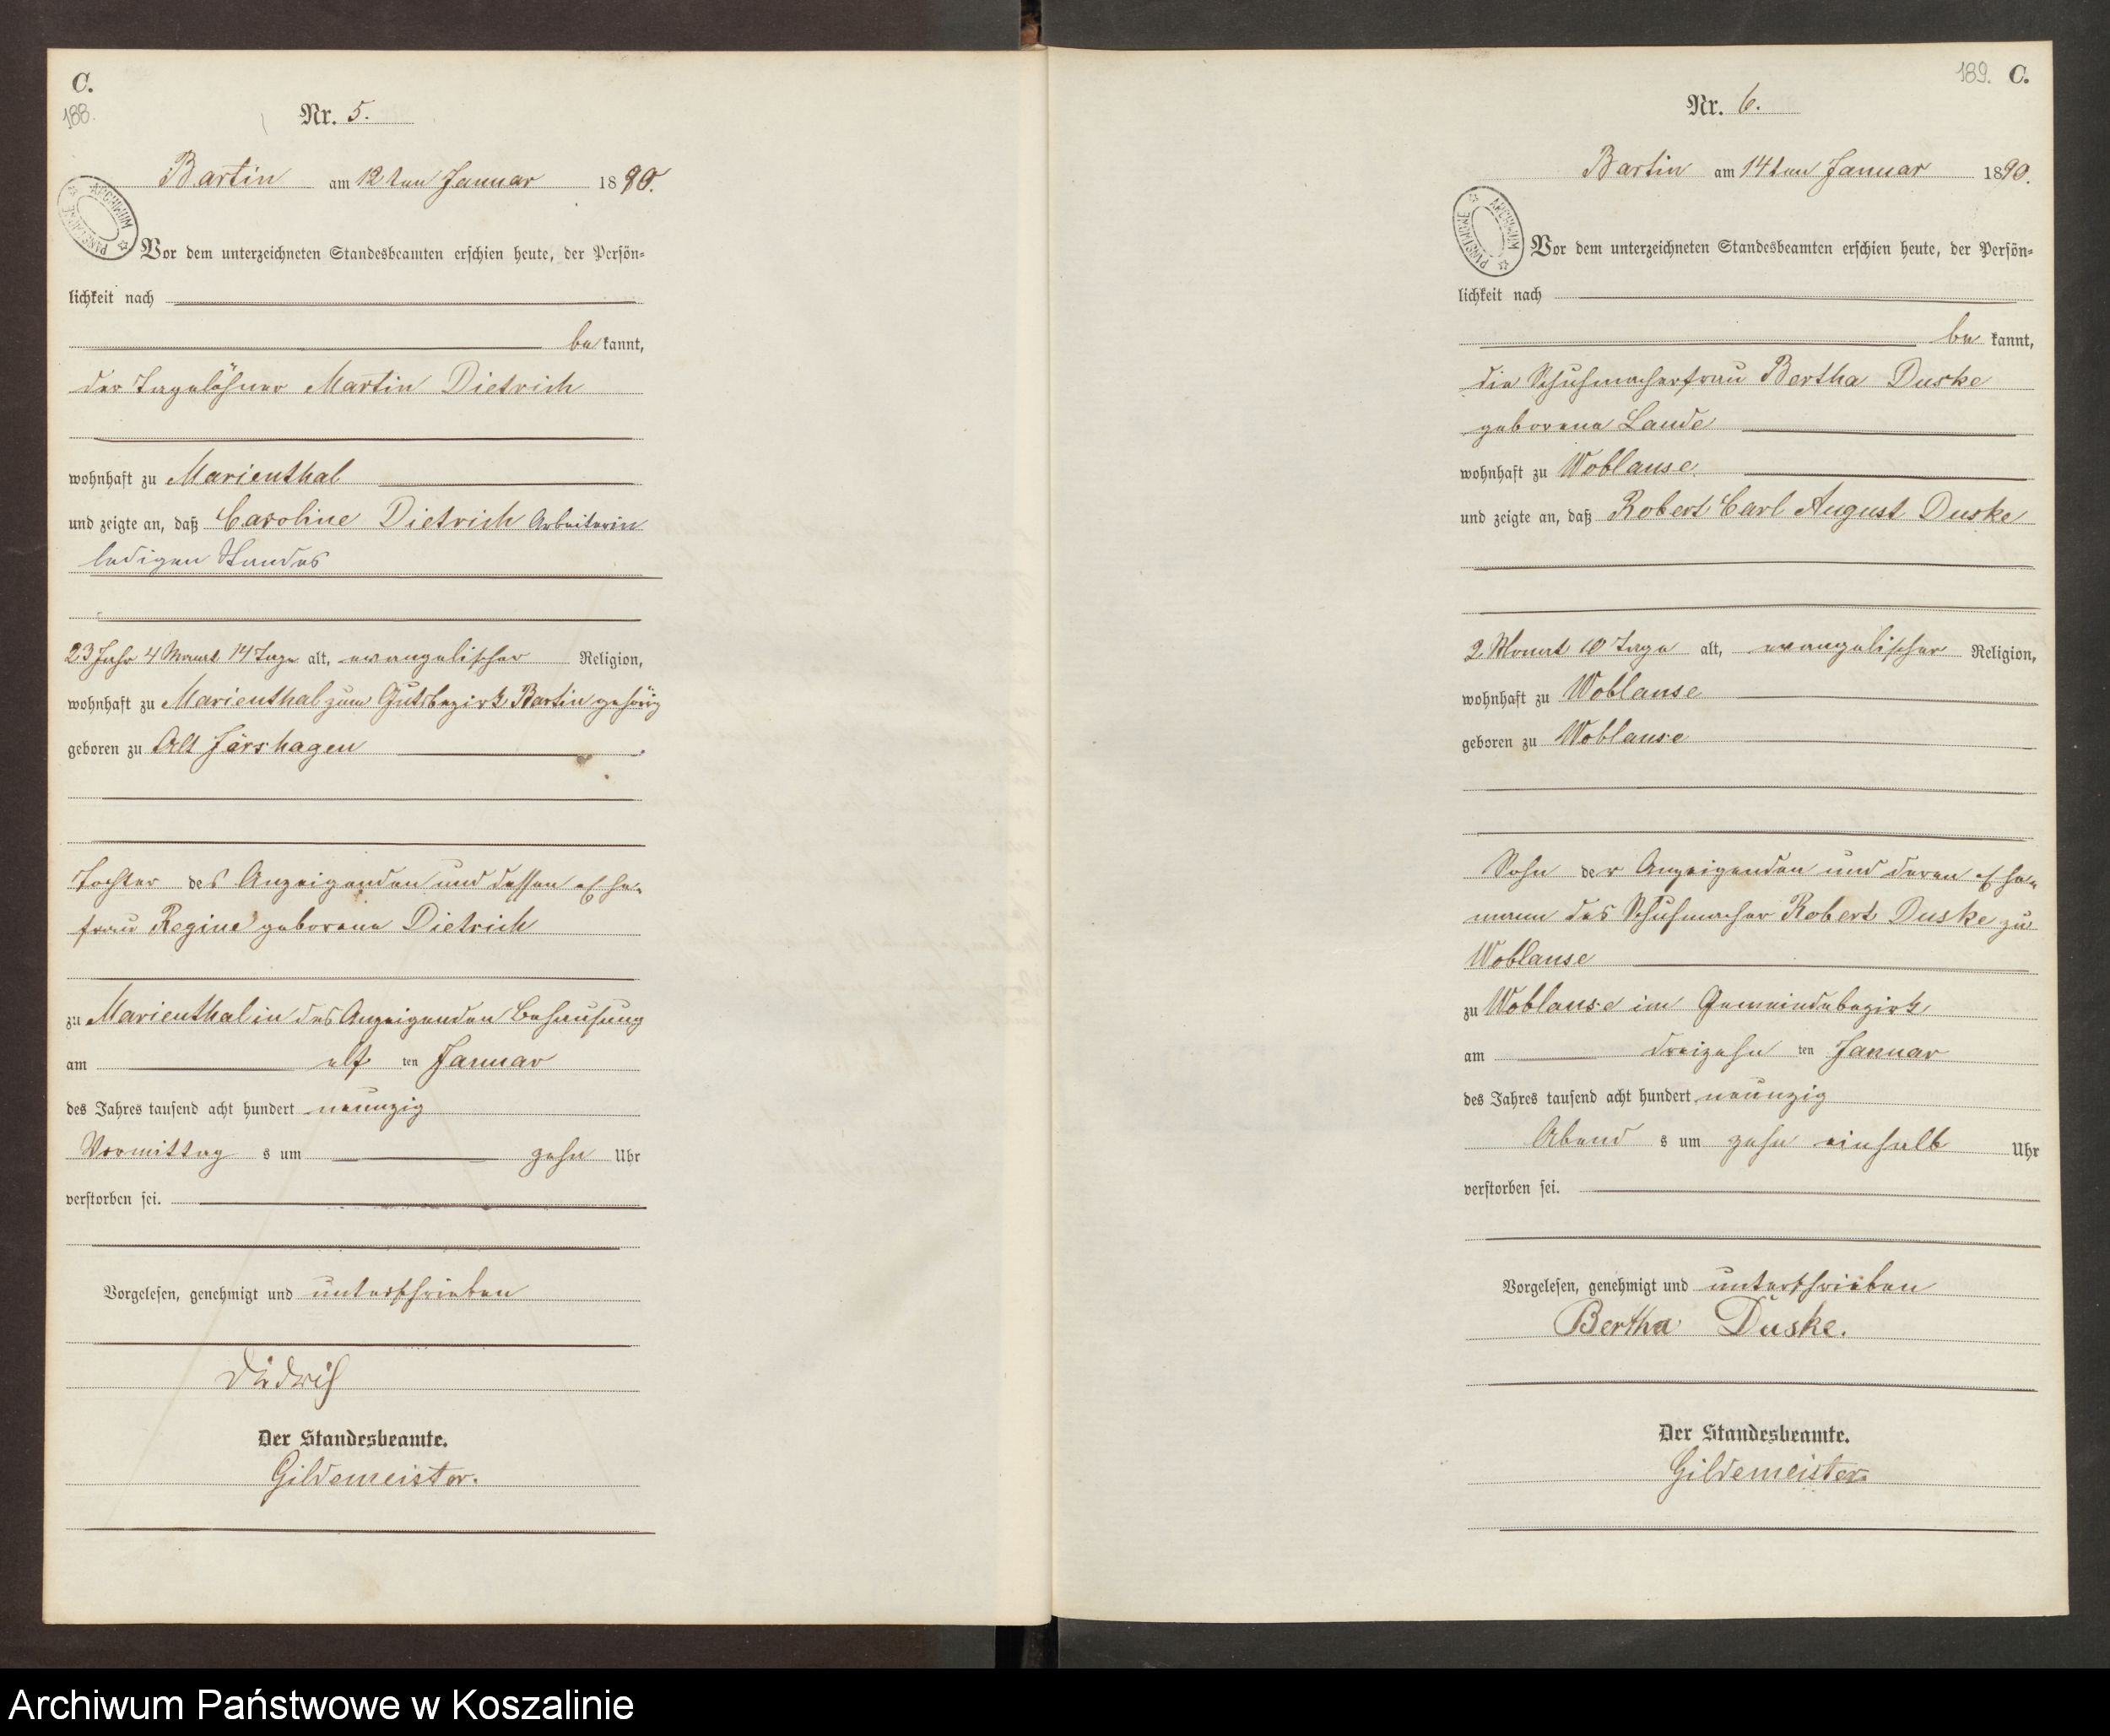 C.
188.
Nr. 5.
Bartin am 12ten Januar 1890.
ARCHIWUM PAŃSTWOWE
Vor dem unterzeichneten Standesbeamten erschien heute, der Persön-
lichkeit nach
be kannt,
der Tagelöhner Martin Dietrich
wohnhaft zu Marienthal
und zeigte an, daß Caroline Dietrich Arbeiterin
ledigen Standes
23 Jahr 4 Monat 14 Tage alt, evangelischer Religion,
wohnhaft zu Marienthal zum Gutsbezirk Bartin gehörig
geboren zu Alt Järshagen
Tochter des Anzeigenden und dessen Ehe-
frau Regine geborene Dietrich
zu Marienthal in des Anzeigenden Behausung
am elf ten Januar
des Jahres tausend acht hundert neunzig
Vormittag s um zehn Uhr
verstorben sei.
Vorgelesen, genehmigt und unterschrieben
Didrich
Der Standesbeamte.
Gildemeister.
189. C.
Nr. 6.
Bartin am 14ten Januar 1890.
ARCHIWUM PAŃSTWOWE
Vor dem unterzeichneten Standesbeamten erschien heute, der Persön-
lichkeit nach
be kannt,
die Schuhmacherfrau Bertha Duske
geborene Laude
wohnhaft zu Woblanse
und zeigte an, daß Robert Carl August Duske
2 Monat 10 Tage alt, evangelischer Religion,
wohnhaft zu Woblanse
geboren zu Woblanse
Sohn der Anzeigenden und deren Ehe-
mann des Schuhmacher Robert Duske zu
Woblanse
zu Woblanse im Gemeindebezirk
am dreizehn ten Januar
des Jahres tausend acht hundert neunzig
Abend s um zehn einhalb Uhr
verstorben sei.
Vorgelesen, genehmigt und unterschrieben
Bertha Duske.
Der Standesbeamte.
Gildemeister.
Archiwum Państwowe w Koszalinie